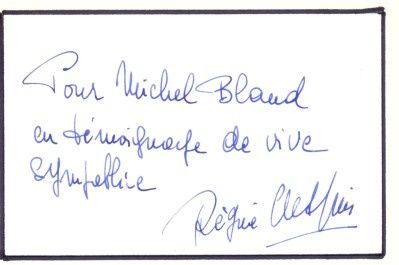 Pour Michel Bland
en témoignage de vive
sympathie
Régine